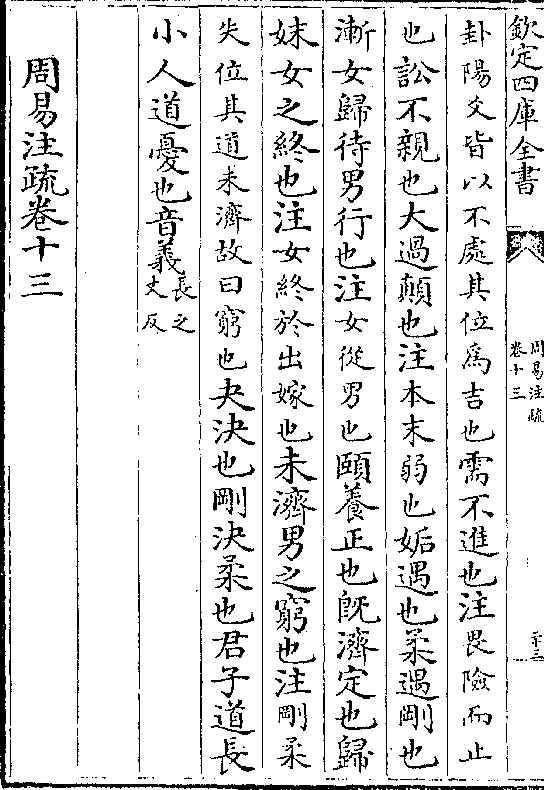 欽定四庫全書
周易注疏
卷十三
卦陽爻皆以不處其位為吉也需不進也注畏險而止
也訟不親也大過顛也注本末弱也姤遇也柔遇剛也
漸女歸待男行也注女從男也頤養正也既濟定也歸
妹女之終也注女終於出嫁也未濟男之窮也注剛柔
失位其道未濟故曰窮也夬決也剛決柔也君子道長
小人道憂也音義長之丈反
周易注疏卷十三